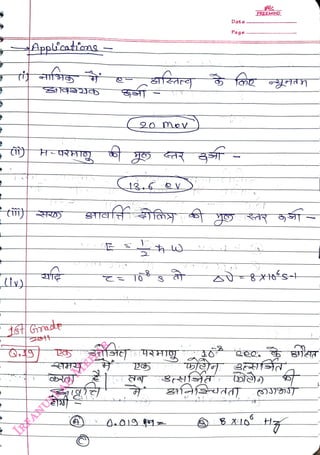 Date
Page
→ Applications —
(i) नाभिक में e- अस्तित्व के लिए न्यूनतम
आवश्यक ऊर्जा —
20 Mev
(ii) H-परमाणु की मूल स्तर ऊर्जा —
13.6 ev
(iii) सरल आवर्ति दोलित्र की मूल स्तर ऊर्जा —
E = 1/2 ħ ω
(iv) यदि τ = 10⁻⁸ s तो ΔV = 8×10⁶ S-1
1st Grade
2011
Q.39 एक उत्तेजित परमाणु 10⁻⁸ sec. के औसत
समय में एक फोटोन उत्सर्जित
करता है। तब उत्सर्जित फोटोन की
आवृत्ति में अनिश्चितता लगभग
होगी —
8×10⁶ Hz